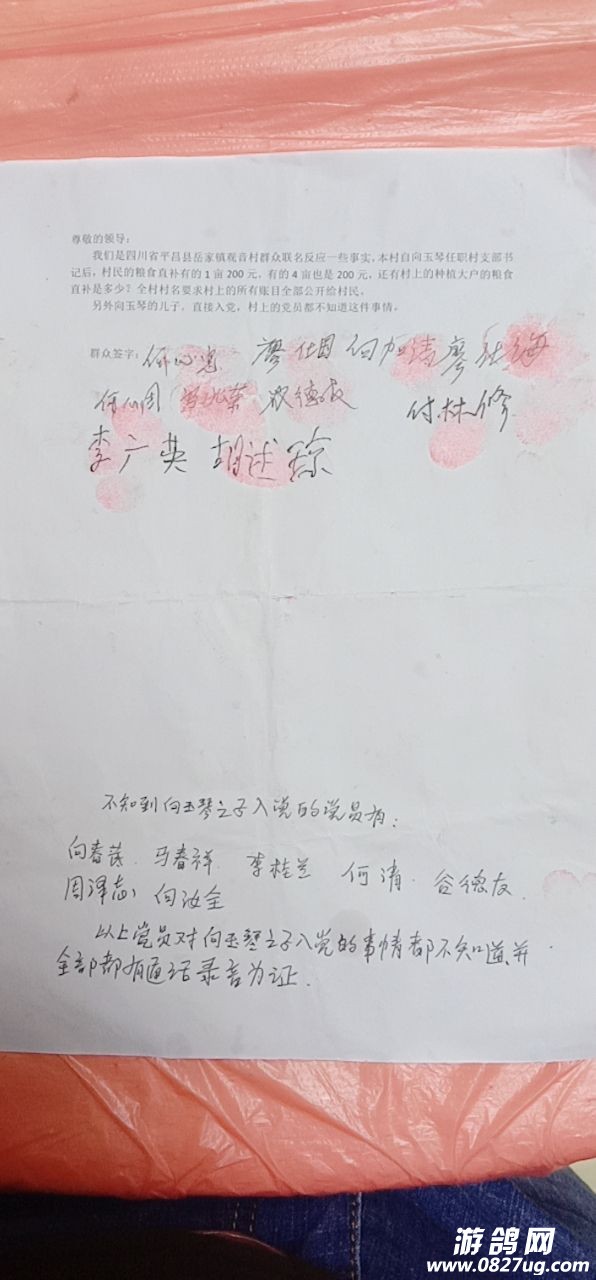 尊敬的领导：
我们是四川省平昌县岳家镇观音村群众联名反应一些事实，本村自向玉琴任职村支部书
记后，村民的粮食直补有的1亩200元，有的4亩也是200元，还有村上的种植大户的粮食
直补是多少？全村村名要求村上的所有账目全部公开给村民。
另外向玉琴的儿子，直接入党，村上的党员都不知道这件事情。
群众签字：何 廖仕国 向加清 廖
何 德 付林修
李广英 胡述琼
不知到向玉琴之子入党的党员有：
向春茂 马春祥 李桂兰 何清 谷德友
周泽志 向汝全
以上党员对向玉琴之子入党的事情都不知道并
全部都有通话录音为证.
游鸽网
www.0827ug.com